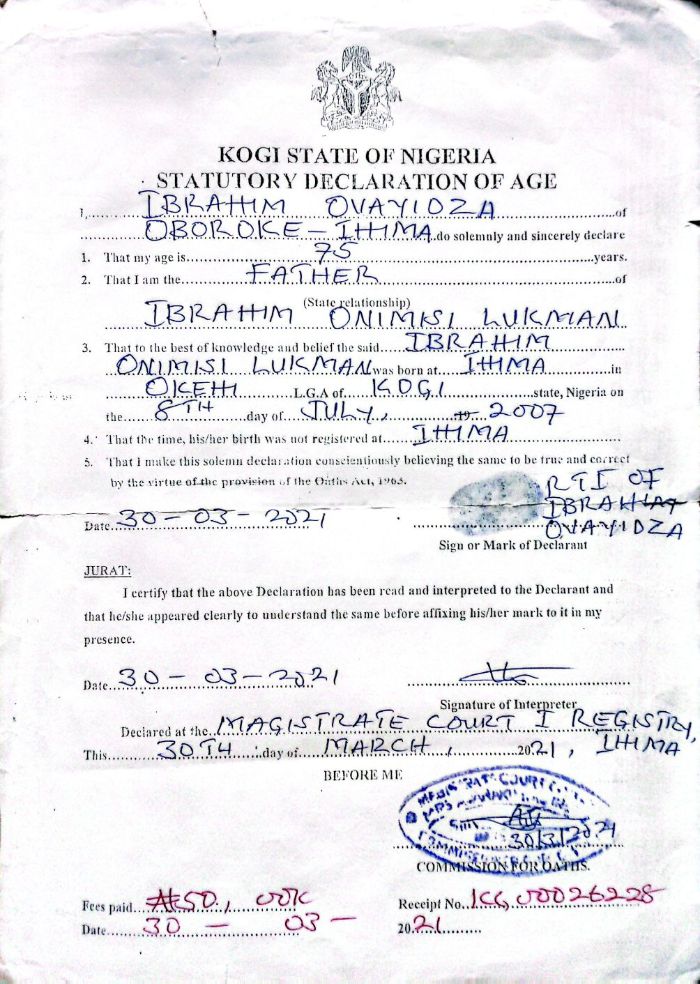 KOGI STATE OF NIGERIA
STATUTORY DECLARATION OF AGE
I, IBRAHIM OVAYIOZA of
OBOROKE - IHIMA do solemnly and sincerely declare
1. That my age is 75 years.
2. That I am the FATHER of
(State relationship)
IBRAHIM ONIMISI LUKMAN
3. That to the best of knowledge and belief the said IBRAHIM
ONIMISI LUKMAN was born at IHIMA in
OKEHI L.G.A of KOGI state, Nigeria on
the 8TH day of JULY, 19 2007
4. That the time, his/her birth was not registered at IHIMA
5. That I make this solemn declaration conscientiously believing the same to be true and correct
by the virtue of the provision of the Oaths Act, 1963.
RTI OF
IBRAHIM
OVAYIOZA
Date 30-03-2021
Sign or Mark of Declarant
JURAT:
I certify that the above Declaration has been read and interpreted to the Declarant and
that he/she appeared clearly to understand the same before affixing his/her mark to it in my
presence.
Date 30-03-2021
Signature of Interpreter
Declared at the MAGISTRATE COURT I REGISTRY,
This 30TH day of MARCH, 2021, IHIMA
BEFORE ME
MAGISTRATE COURT
30/3/2021
COMMISSION FOR OATHS.
Fees paid ₦50, 00K Receipt No. KG 00026228
Date 30 - 03 - 2021